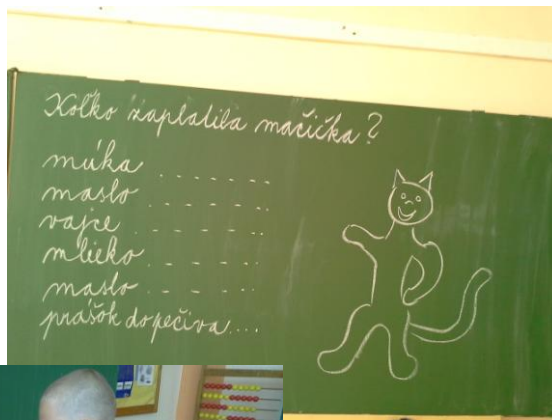 Koľko zaplatila mačička?
múka .......
maslo ......
vajce ......
mlieko ......
maslo ......
prášok do pečiva....